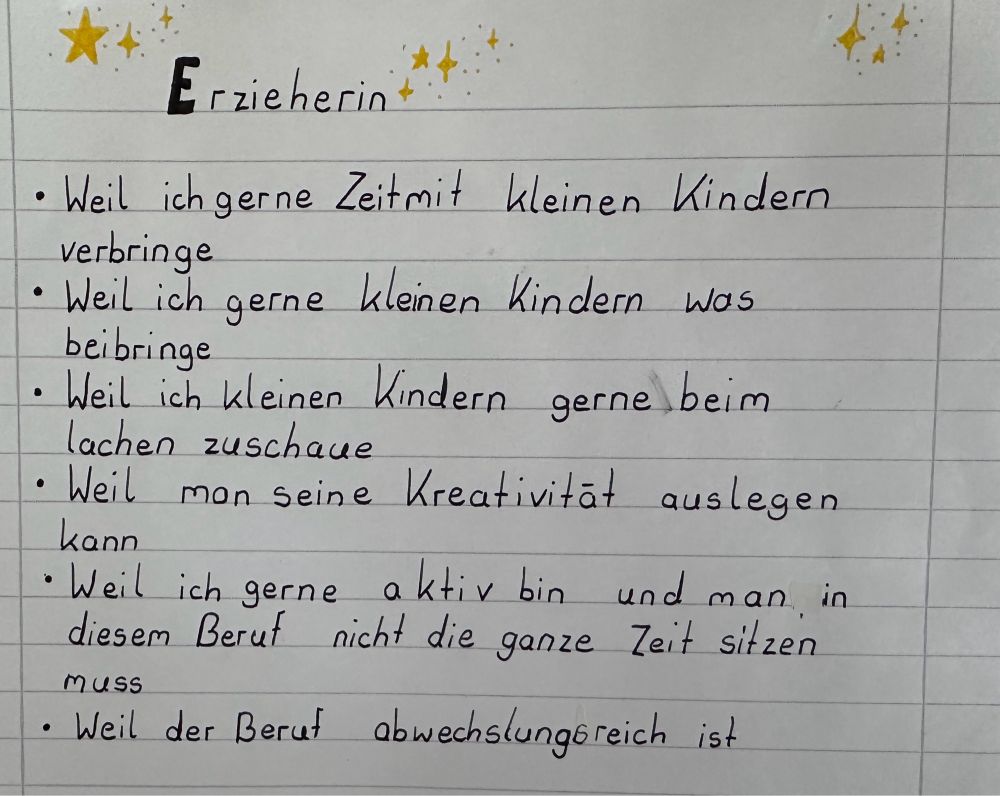 Erzieherin
• Weil ich gerne Zeit mit kleinen Kindern
verbringe
• Weil ich gerne kleinen Kindern was
beibringe
• Weil ich kleinen Kindern gerne beim
lachen zuschaue
• Weil man seine Kreativität auslegen
kann
• Weil ich gerne aktiv bin und man in
diesem Beruf nicht die ganze Zeit sitzen
muss
• Weil der Beruf abwechslungsreich ist